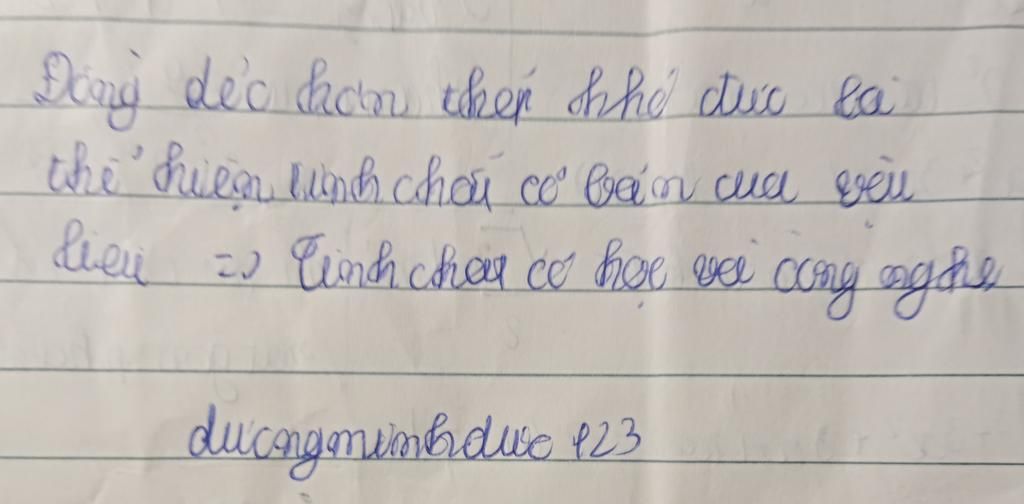 Đồng dẻo hơn thép khó đúc là
thể hiện tính chất cơ bản của vật
liệu => Tính chất cơ học và công nghệ
duongminhduc123